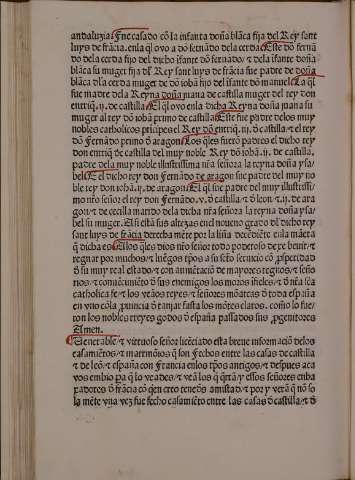 andaluzia Fue casado cõ la infanta doña blãca fija del Rey sant
luys de frãcia. en la q̃l ovo a dõ ferrãdo dela cerda Este dõ ferrã
do dela cerda fijo del dicho ifante dõ ferrãdo ⁊ dela ifante doña
blãca su muger fija dl̃ Rey sant luys de frãcia fue padre de doña
blãca dl̃a cerda muger de dõ iohã fijo del ifante dõ manuel La q̃l
fue madre dela Reyna doña iuana de castilla muger del rey don
enriq̃. ii. de castilla El q̃l ovo en la dicha Reyna doña iuana su
muger al rey dõ iohã primo de castilla Este fue padre delos muy
nobles catholicos pricipes el Rey dõ enriq̃. iii. d̃ castilla ⁊ el rey
dõ Ferrãdo primo d̃ aragon Los q̃les fuerõ padres el dicho rey
don enriq̃ de castilla del muy noble Rey dõ iohã. ii. de castilla.
padre dela muy noble illustrissima nr̃a señora la reyna doña ysa
bel E el dicho rey don Ferrãdo de aragon fue padre del muy no
ble rey don iohã. ii. de aragon El q̃l fue padre del muy illustrissi
mo nr̃o señor el rey don Ferrãdo. v. d̃ castilla ⁊ d̃ leon ⁊. ii. de ara
gon ⁊ de cecilia marido dela dicha nr̃a señora la reyna doña ysa
bel su muger. Assi está sus altezas en el noueno grado dl̃ dicho rey
sant luys de frãcia derecha mẽte por la liña decẽdiẽte en la maẽra
q̃ dicha es A los q̃les dios nr̃o señor todo poderoso dexe benir ⁊
regnar por muchos ⁊ luẽgos tp̃os a su sctõ seruicio cõ p̃speridad
d̃ su muy real estado ⁊ con aumẽtació de mayores regnos ⁊ seño
rios ⁊ comẽ uincimiẽto d̃ sus enemigos los moros ifieles ⁊ d̃ nr̃a sc̃a
catholica fe ⁊ los veãos reyes ⁊ señores mõarcas d̃ toda españa
en vno cõ la prouincia d̃ anjar fasta los mõtes claros. como lo fue
ron los nobles rreyes godos d̃ españa passados sus progenitores
Amen.
Uenerable ⁊ virtuoso señor licẽciado esta breue informació delos
casamiẽtos ⁊ matrimõios q̃ son fechos entre las casas de castilla
⁊ de leõ ⁊ españa con francia en los tp̃os antigos ⁊ despues aca
vos embio para q̃ lo veades ⁊ veã los q̃ q̃rrã ⁊ essos señores enba
xadores d̃ frãcia cõ q̃en creo teneys amistad ⁊ por ⁊ verã q̃ nõ so
la mẽte vna vez fue fecho casamiẽto entre las casas d̃ castilla ⁊ d̃